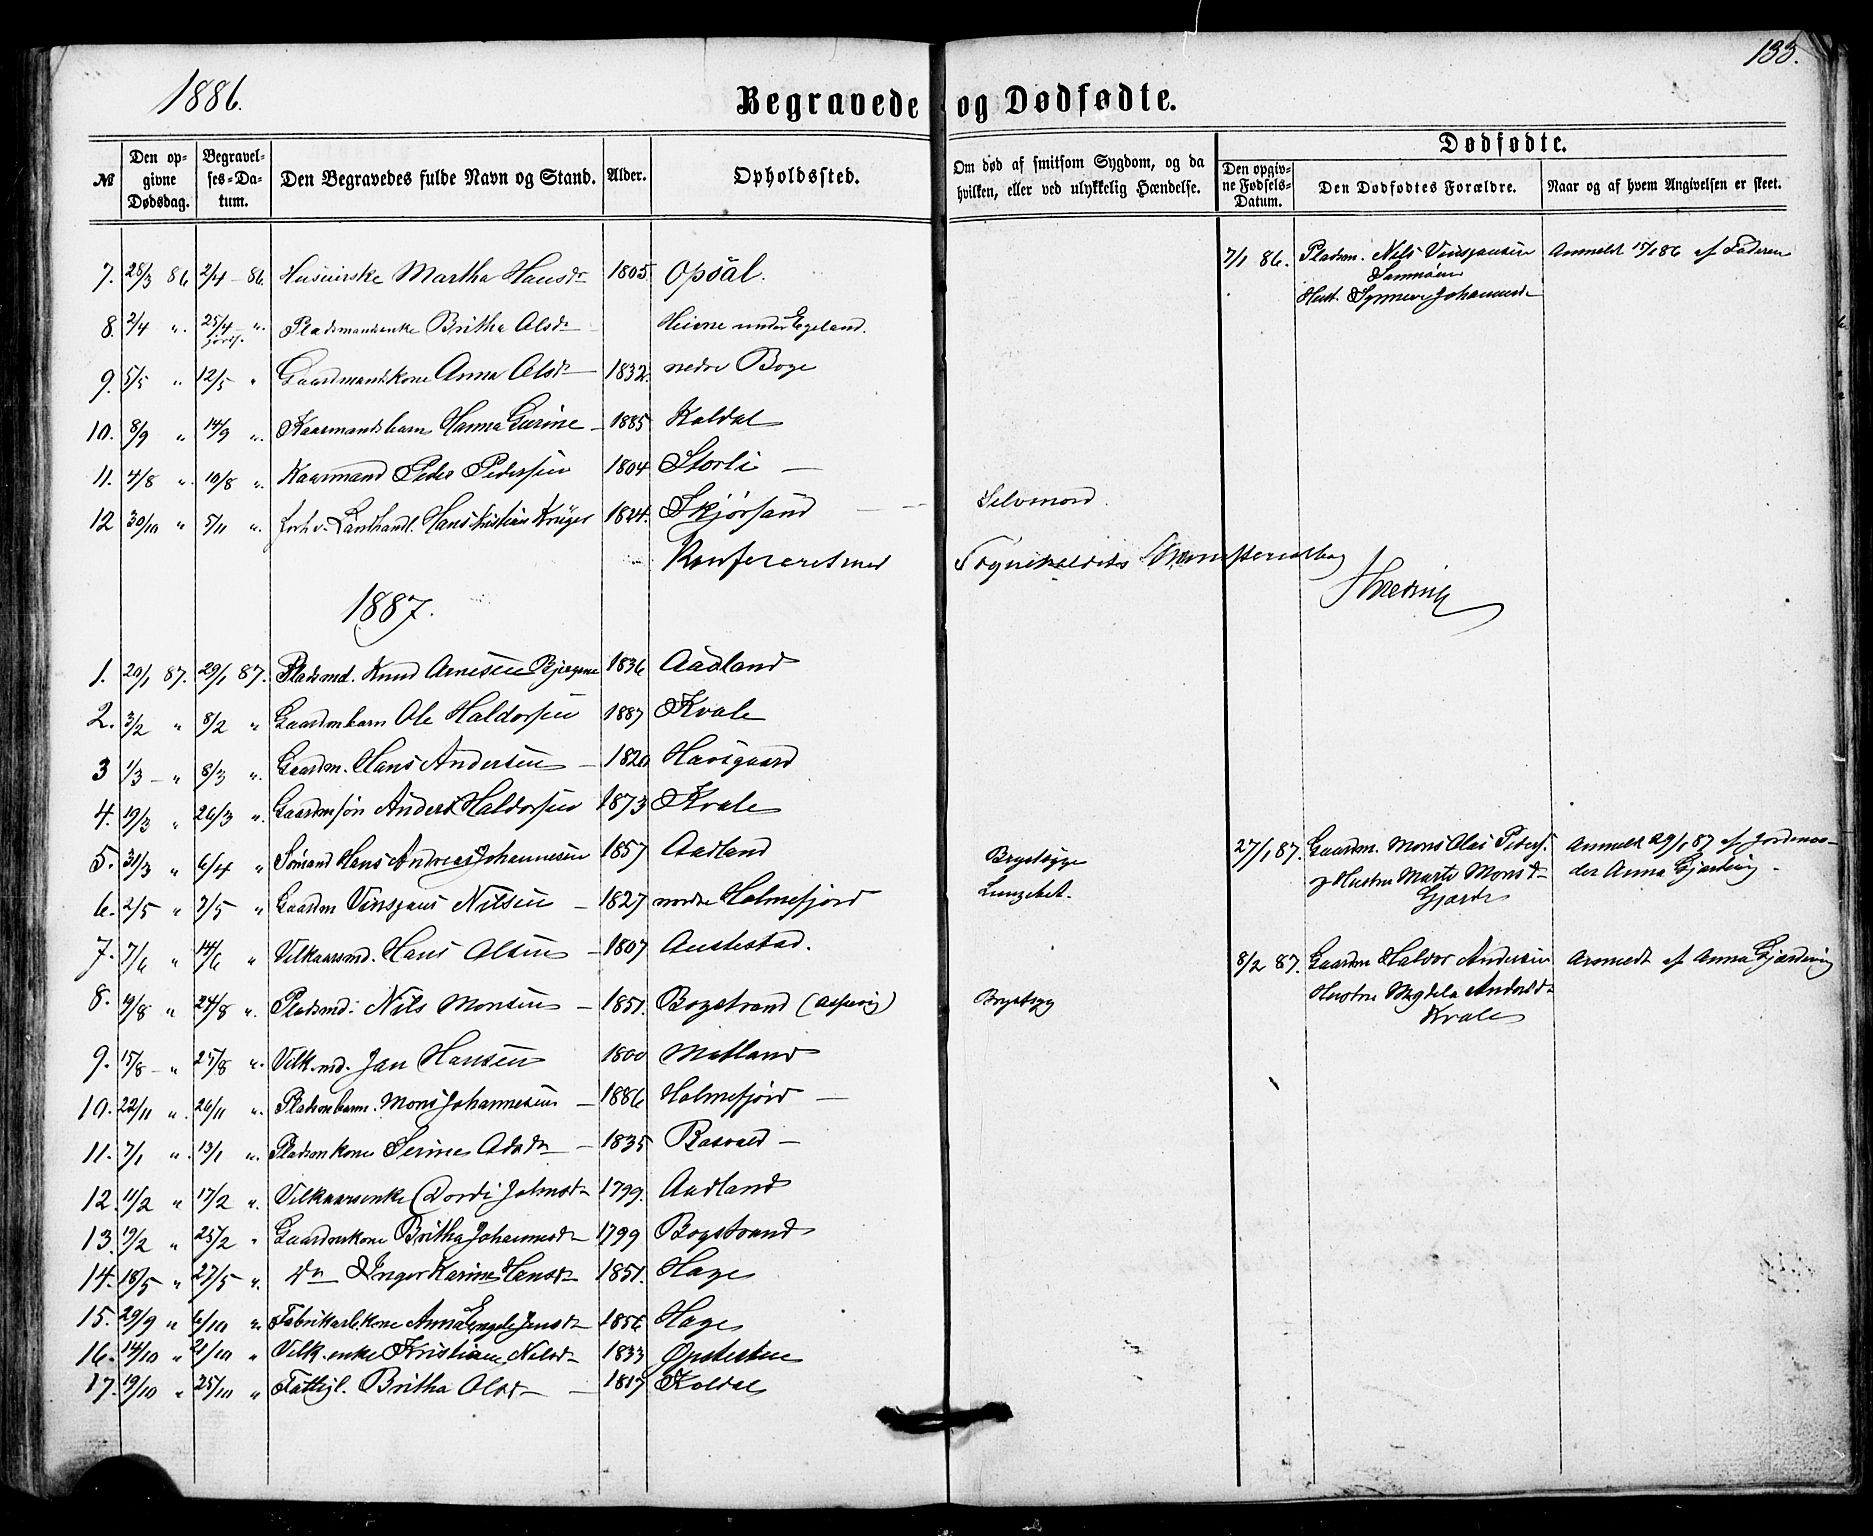 1886.
133.
Begravede og Dødfødte.
Dødfødte.
№
Den opgivne Dødsdag.
Begravelses-Datum.
Den Begravedes fulde Navn og Stand.
Alder.
Opholdssted.
Om død af smitsom Sygdom, og da hvilken, eller ved ulykkelig Hændelse.
Den opgivne Fødsels-Datum.
Den Dødfødtes Forældre.
Naar og af hvem Angivelsen er skeet.
7. 28/3 86 2/4 - 86. Martha Hansd 1805. Opsal.
7/1 86. Pladsm. Nils Vinsjansen
Anmeldt 15/1 86 af Faderen
Hust. Synneve Johannesd
8. 2/4 " 25/4 " Pladsmandsenke Britha Olsd under Egeland.
9. 5/5 " 12/5 " Gaardmandskone Anna Olsd 1832. nedre Boge
10. 8/9 " 14/9 " Kaarmandsbarn Hanna Gurine 1885 Koldal
11. 4/8 " 10/8 " Kaarmand Peder Pedersen 1804 Storli
12 30/10 " 5/11 " forh.v. Landhandl. Hans Kristian Krüger 1824. Skjørsand Selvmord.
Konfereret med Sognekaldets Ministerialbog
1887.
1. 20/1 87. 29/1 87. Pladsmd. Knud Arnesen 1836 Aadland
2. 3/2 " 8/2 " Gaardmbarn Ole Haldorsen 1887 Kvale
3 1/3 - " 8/3 " Gaardm. Hans Andersen 1820 Havsgaard
4. 19/3 " 26/3 " Gaardmsøn Anders Haldorsen 1873 Kvale
5. 31/3 " 6/4 " Sømand Hans Andreas Johannesen 1857 Aadland Brystsyge
27/1 87. Gaardm. Mons Olai Peders.
Anmeldt 29/1 87 af Jordemo-
og Hustru Marte Monsd
der Anna Gjerdevig
6. 2/5 " 7/5 " Gaardm Vinsjans Nilsen 1827 nordre Holmefjord
7. 7/6 " 14/6 " Vilkaarsmd. Hans Olsen 1807 Austestad.
8/2 87. Gaardm Haldor Andersen
Anmeldt af Anna Gjerdevig
Hustru Magdela Andersd
Kvale
8. 19/8 " 24/8 " Pladsmd. Nils Monsen 1851. Bogstrand (Aspevig) Brystsyg
9. 15/8 - " 25/8 " Vilk.md. Jan Hansen 1800 Matland
10. 22/11 " 26/11 " Pladsmbarn. Mons Johannesen 1886 Holmefjord
11. 7/1 " 13/1 " Pladsmkone Serine 1835
12. 11/2 " 17/2 " Vilkaarsenke Dordi Johnsd 1799. Aadland
13. 19/2 " 25/2 " Gaardmkone Britha Johannesd 1799 Bogstrand
14. 18/5 " 27/5 " Do Inger Karine Hansd 1851. Hage
15. 29/9 " 6/10 " Fabrikarb.kone Anna Engele Jensd 1856 Hage
16. 14/10 " 21/10 " Vilk.enke Kristiane Nilsd 1833
17. 19/10 " 25/10 " Fattigl. Britha Olsd 1817 Koldal